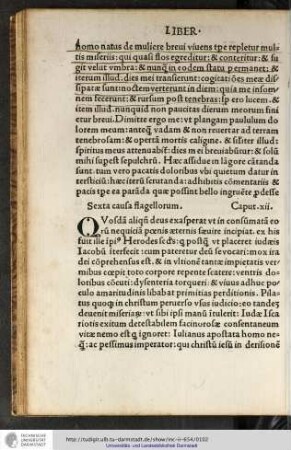 LIBER
homo natus de muliere breui viuens tpe repletur mul
tis miseriis: qui quasi flos egreditur: & conteritur: & fu
git velut vmbra: & nunq̃ in eodem statu permanet: &
iterum illud. dies mei transierunt: cogitatiões meę dis
sipatę sunt: noctem verterunt in diem: quia me insom
nem fecerunt: & rursum post tenebras: spero lucem. &
item illud. nunquid non paucitas dierum meorum fini
etur breui. Dimitte ergo me: vt plangam paululum do
lorem meum: anteq̃ vadam & non reuertar ad terram
tenebrosam: & opertã mortis caligine. & similiter illud:
spiritus meus attenuabit: dies mei breuiabũtur: & solũ
mihi supest sepulchrũ. Hæc assidue in lãgore cãtanda
sunt: tum vero pactatis doloribus vbi quietum datur in
terstitiũ: hæc iterũ scrutanda: adhibitis cõmentariis &
patis tpe ea parãda quæ possint bello ingruēte pdesse
Sexta causa flagellorum. Caput .xii.
QVosdã aliqñ deus exasperat vt in consumatã eo
rũ nequiciã pœnis æternis sæuire incipiat. ex his
fuit ille Herodes qui postq̃ vt placeret iudæis
Iacobũ iterfecit: cum pateretur deũ se vocari: mox ira
dei cõprehensus est. & in vltionẽ tantæ impietatis ver
mibus cœpit toto corpore repente scatere: ventris do
loribus cõcuti: dysenteria torqueri: & viuus adhuc po
culo amaritudinis libabat primitias perditionis. Pila
tus quoq̧ in christum peruerso vsus iudicio: eo tandẽ
deuenit miseriæ: vt sibi ipsi manũ ĩtulerit. Iudæ isca
riotis exitum detestabilem facinorosæ consentaneum
vitæ nemo est q̧ ignoret: Iulianus apostata homo ne
q̃: ac pessimus imperator: qui christũ iesũ in derisionẽ
TECHNISCHE
UNIVERSITÄT
DARMSTADT
http://tudigit.ulb.tu-darmstadt.de/show/inc-ii-654/0102
Universitäts- und Landesbibliothek Darmstadt